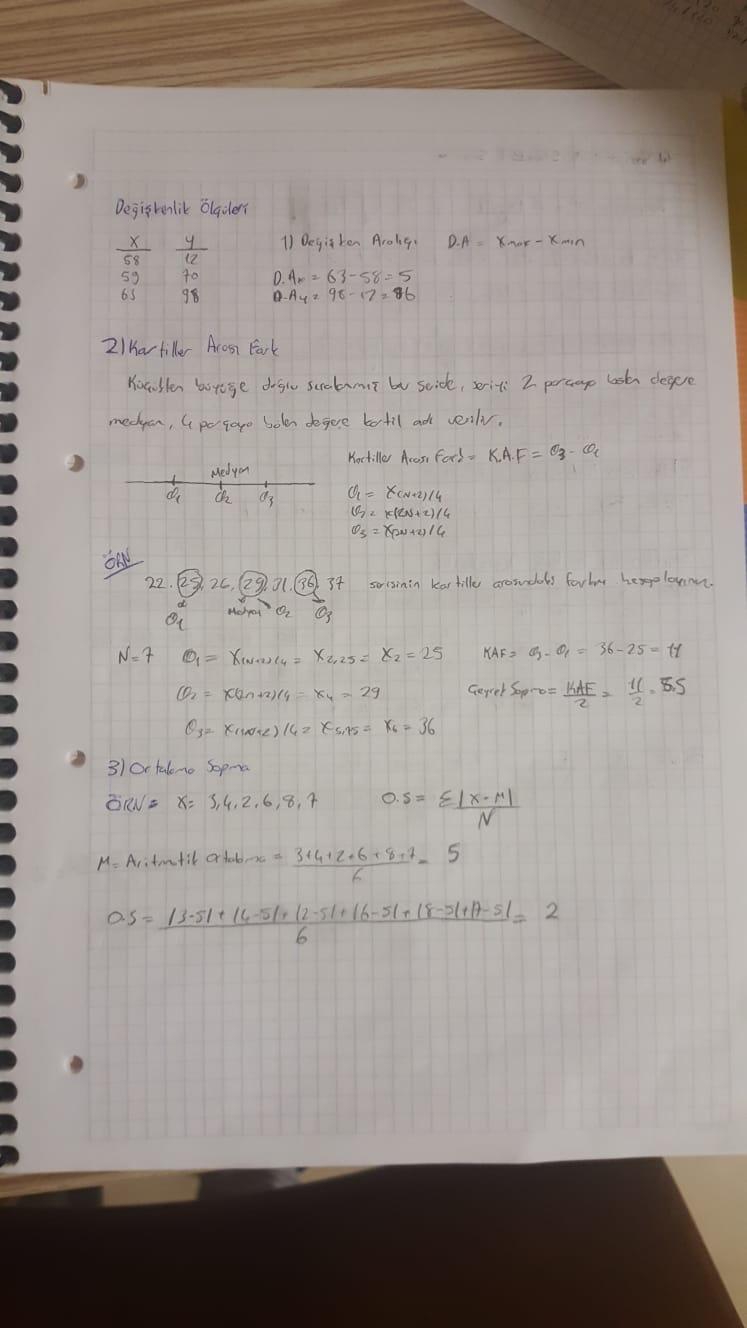 Değişkenlik Ölçüleri
X y 1) Değişken Aralığı D.A = Xmax - Xmin
58 12
59 70 D.Ax = 63-58=5
63 98 D.Ay = 98-12=86
2) Kartiller Arası Fark
Küçükten büyüğe doğru sıralanmış bu seride, seriyi 2 parçaya bölen değere
medyan, 4 parçaya bölen değere kartil adı verilir.
Kartiller Arası Fark = K.A.F = Q3 - Q1
Medyan
Q1 Q2 Q3
Q1 = X(N+2)/4
Q2 = X(2N+2)/4
Q3 = X(3N+2)/4
ÖRN
22, 25, 26, 29, 31, 36, 37 serisinin kartiller arasındaki farkını hesaplayınız.
Q1 Medyan Q2 Q3
N=7 Q1 = X(N+2)/4 = X2,25 = X2 = 25 KAF = Q3-Q1 = 36-25 = 11
Q2 = X(2n+2)/4 = X4 = 29 = KAF/2 = 11/2 = 5.5
Q3 = X(3N+2)/4 = X5,75 = X6 = 36
3) Ortalama Sapma
ÖRN = X= 3,4,2,6,8,7 O.S = Σ|X-M|/N
M= Aritmetik Ortalama = 3+4+2+6+8+7/6 = 5
O.S = |3-5|+|4-5|+|2-5|+|6-5|+|8-5|+|7-5|/6 = 2